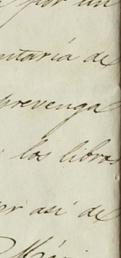 por un
ntaría de
prevenga
los libros
er así de